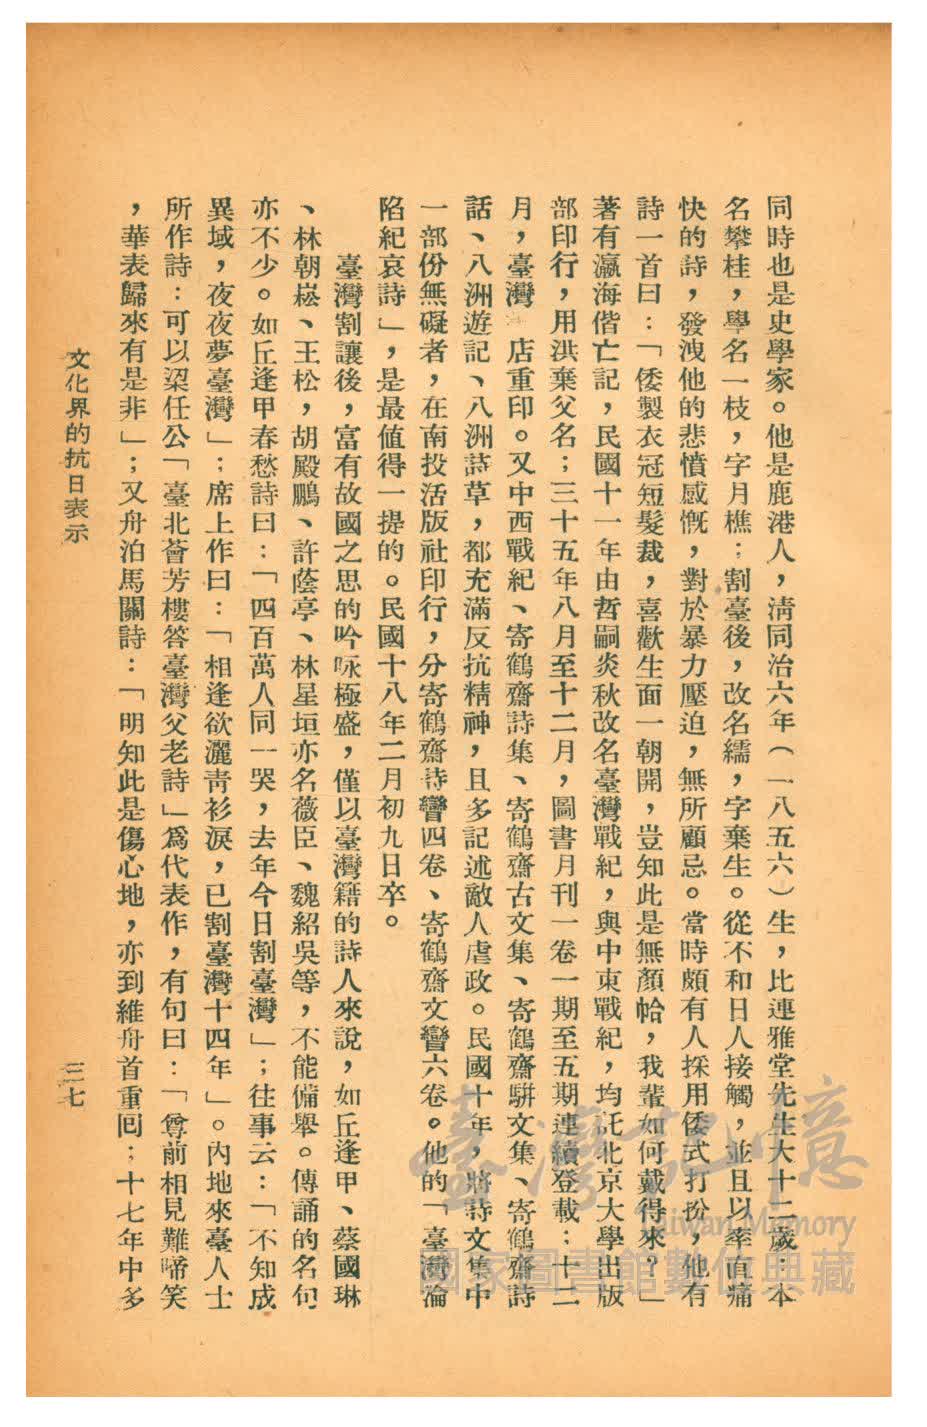 同時也是史學家。他是鹿港人，清同治六年（一八五六）生，比連雅堂先生大十二歲；本
名攀桂，學名一枝，字月樵；割臺後，改名繻，字棄生。從不和日人接觸，並且以率直痛
快的詩，發洩他的悲憤感慨，對於暴力壓迫，無所顧忌。當時頗有人採用倭式打扮，他有
詩一首曰：「倭製衣冠短髮裁，喜歡生面一朝開，豈知此是無顏帢，我輩如何戴得來？」
著有瀛海偕亡記，民國十一年由哲嗣炎秋改名臺灣戰紀，與中東戰紀，均託北京大學出版
部印行，用洪棄父名；三十五年八月至十二月，圖書月刊一卷一期至五期連續登載；十二
月，臺灣　店重印。又中西戰紀、寄鶴齋詩集、寄鶴齋古文集、寄鶴齋駢文集、寄鶴齋詩
話、八洲遊記、八洲詩草，都充滿反抗精神，且多記述敵人虐政。民國十年，將詩文集中
一部份無礙者，在南投活版社印行，分寄鶴齋詩臠四卷、寄鶴齋文臠六卷。他的「臺灣淪
陷紀哀詩」，是最值得一提的。民國十八年二月初九日卒。
臺灣割讓後，富有故國之思的吟咏極盛，僅以臺灣籍的詩人來說，如丘逢甲、蔡國琳
、林朝崧、王松，胡殿鵬、許蔭亭、林星垣亦名薇臣、魏紹吳等，不能備舉。傳誦的名句
亦不少。如丘逢甲春愁詩曰：「四百萬人同一哭，去年今日割臺灣」；往事云：「不知成
異域，夜夜夢臺灣」；席上作曰：「相逢欲灑青衫淚，已割臺灣十四年」。內地來臺人士
所作詩：可以梁任公「臺北薈芳樓答臺灣父老詩」爲代表作，有句曰：「尊前相見難啼笑
，華表歸來有是非」；又舟泊馬關詩：「明知此是傷心地，亦到維舟首重回；十七年中多
文化界的抗日表示
三七
臺灣記憶
Taiwan Memory
國家圖書館數位典藏